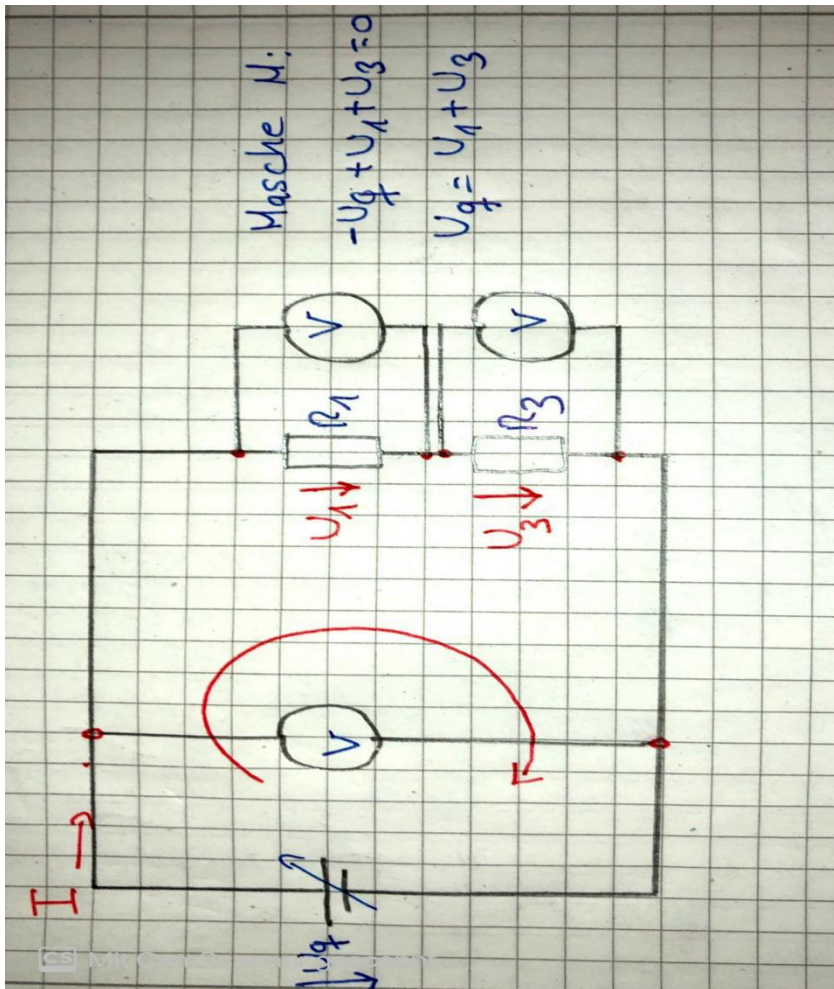 Masche M:
-Uq+U1+U3=0
Uq=U1+U3
V
V
R1
R3
U1
U3
V
I
Uq
CS